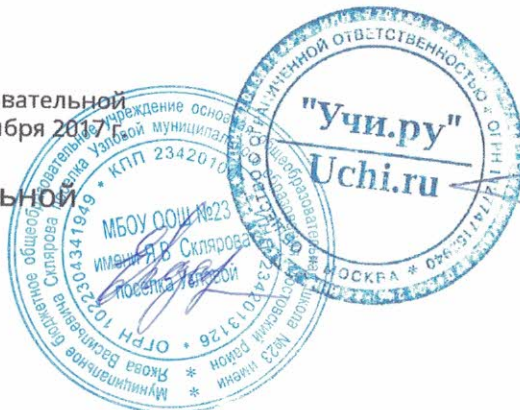 вательной
бря 2017 г.
ьной
Муниципальное бюджетное общеобразовательное учреждение основная общеобразовательная школа №23 имени
Якова Васильевича Склярова поселка Узловой муниципального
район
* ОГРН 1022304341949 * КПП 2342010
2342013126
МБОУ ООШ №23
имени Я В Склярова
поселка Узловой
ОГРАНИЧЕННОЙ ОТВЕТСТВЕННОСТЬЮ * ОГРН
* МОСКВА *
"Учи.ру"
Uchi.ru